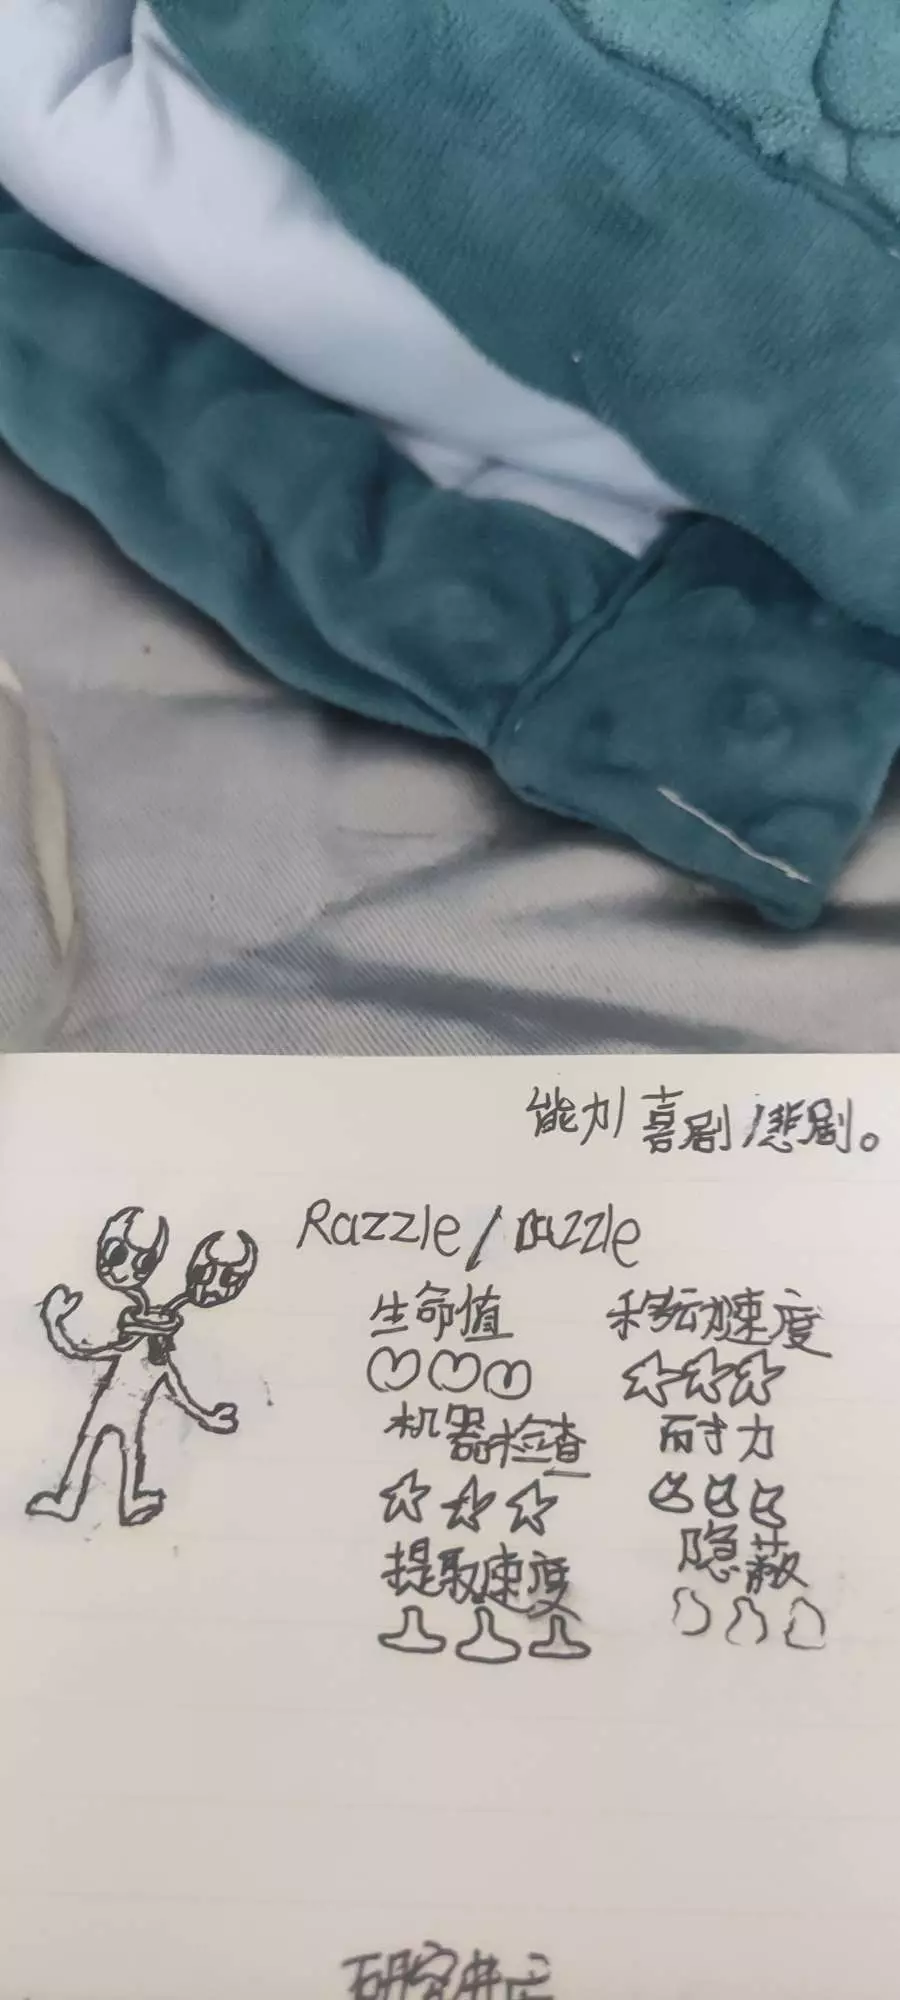 能力 喜剧/悲剧。
Razzle/Dazzle
生命值 移动速度
机器检查 耐力
提取速度 隐蔽
研究